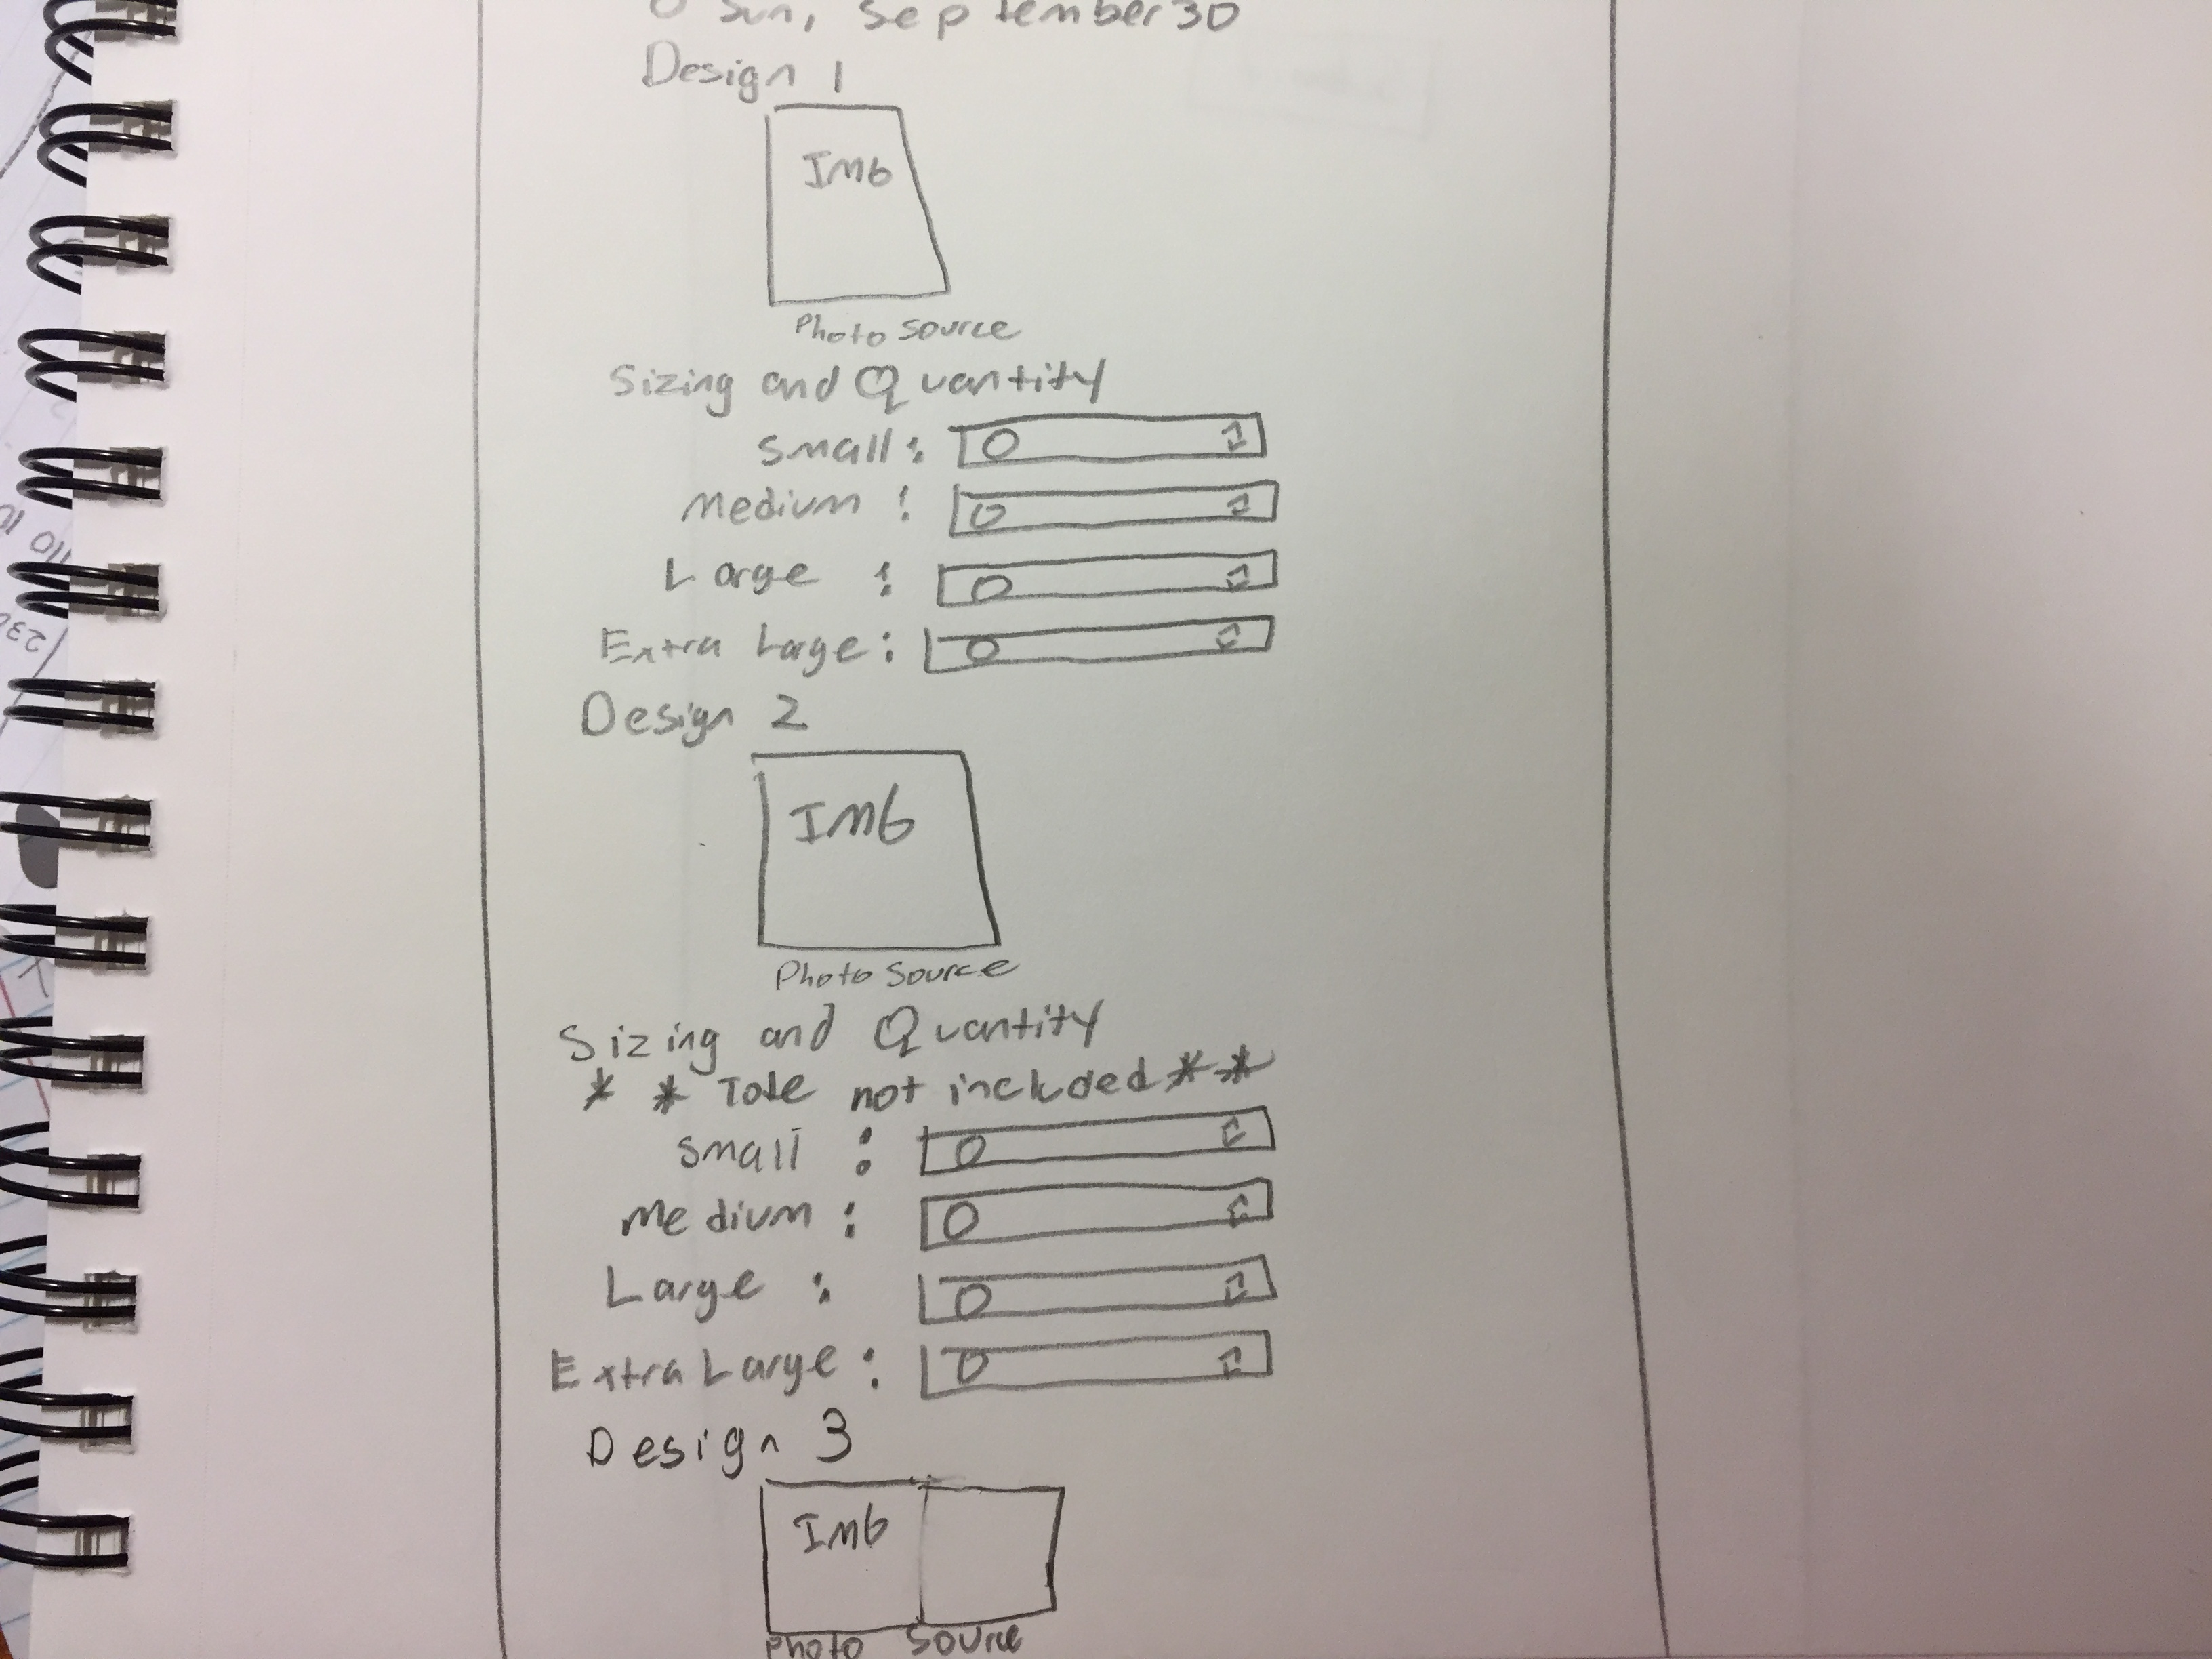 O Sun, September 30
Design 1
IMG
Photo Source
Sizing and Quantity
Small: 0
Medium: 0
Large: 0
Extra Large: 0
Design 2
IMG
Photo Source
Sizing and Quantity
* * Tote not included * *
Small: 0
Medium: 0
Large: 0
Extra Large: 0
Design 3
IMG
Photo Source